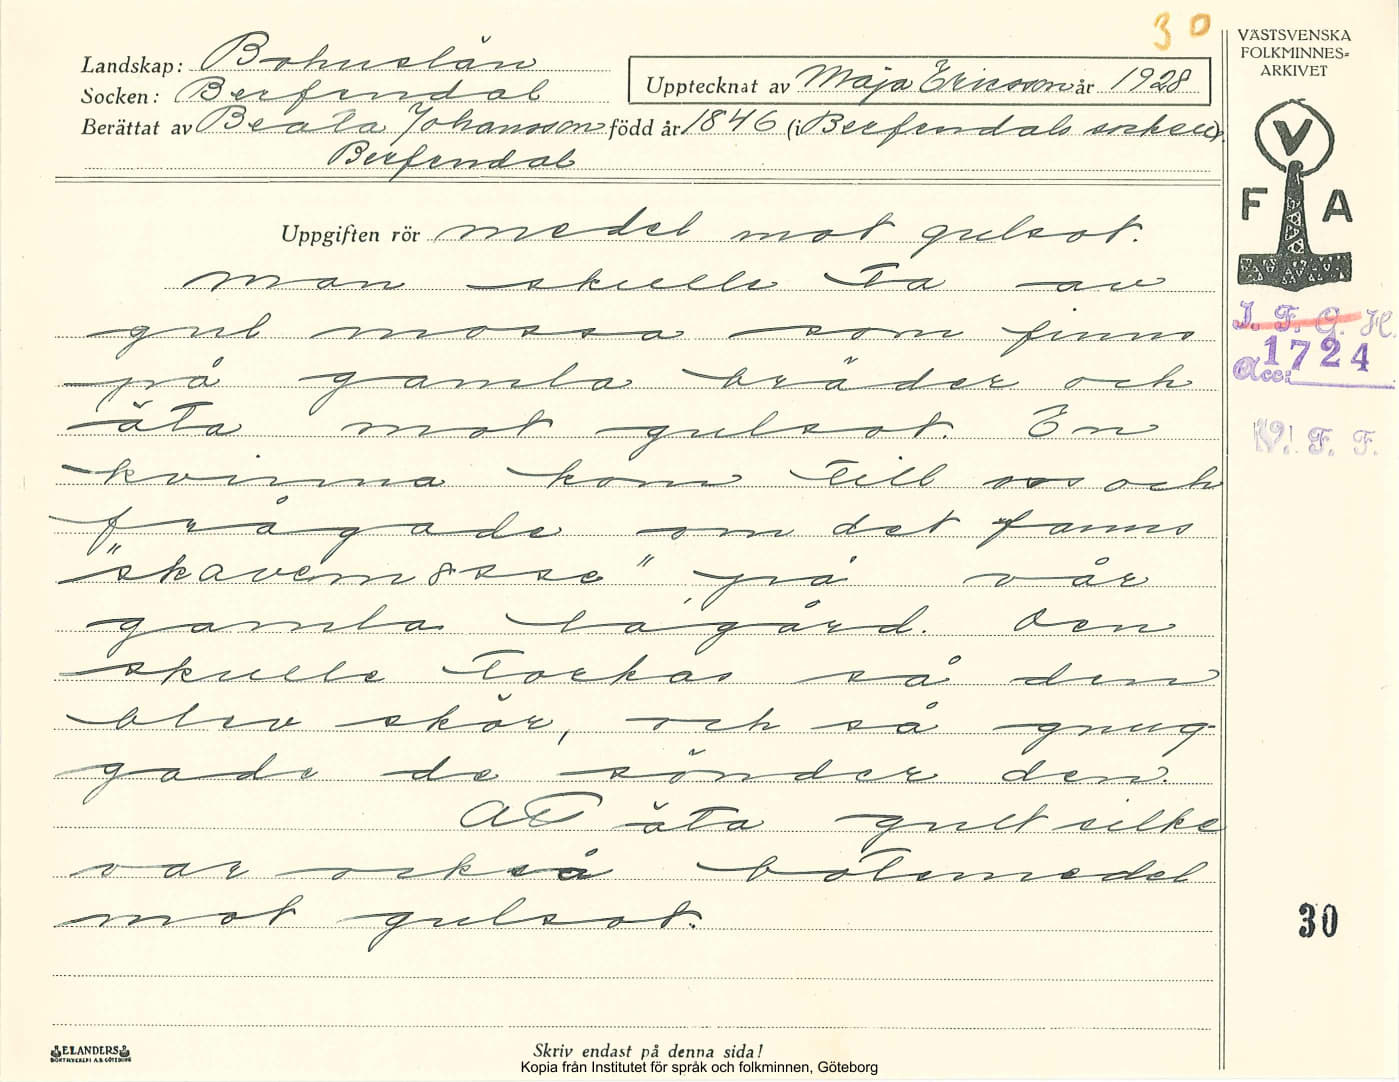 30
VÄSTSVENSKA
FOLKMINNES=
ARKIVET
Landskap: Bohuslän
Socken: Berfendal
Upptecknat av Maja Ericsson år 1928
Berättat av Beata Johansson född år 1846 (i Berfendals socken).
Berfendal
V
F A
Uppgiften rör medel mot gulsot.
Man skulle ta av
gul mossa som finns
på gamla bräder och
äta mot gulsot. En
kvinna kom till oss och
frågade om det fanns
"skavemosse" på vår
gamla lagård. Den
skulle torkas så den
blev skör, och så gnug-
gade de sönder den.
Att äta gult silke
var också botemedel
mot gulsot.
I. F. G. H.
1724
Acc:
V. F. F.
30
ELANDERS
BOKTRYCKERI A.B. GÖTEBORG
Skriv endast på denna sida!
Kopia från Institutet för språk och folkminnen, Göteborg